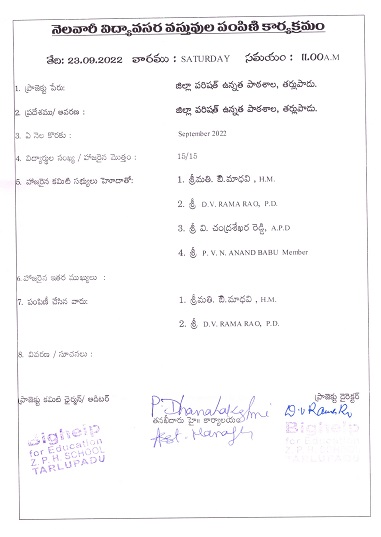 నెలవారీ విద్యావసర వస్తువుల పంపిణి కార్యక్రమం
తేది: 23.09.2022 వారము : SATURDAY సమయం : 11.00A.M
1. ప్రాజెక్టు పేరు: జిల్లా పరిషత్ ఉన్నత పాఠశాల, తర్లుపాడు.
2. ప్రదేశము/ ఆవరణ : జిల్లా పరిషత్ ఉన్నత పాఠశాల, తర్లుపాడు.
3. ఏ నెల కొరకు: September 2022
4. విద్యార్థుల సంఖ్య / హాజరైన మొత్తం: 15/15
5. హాజరైన కమిటి సభ్యులు హెూదాతో: 1. శ్రీమతి. ఐ.మాధవి , H.M.
2. శ్రీ D.V. RAMA RAO, P.D.
3. శ్రీ వి. చంద్రశేఖర రెడ్డి, A.P.D
4. శ్రీ P. V. N. ANAND BABU Member
6.హాజరైన ఇతర ముఖ్యులు :
7. పంపిణీ చేసిన వారు: 1. శ్రీమతి. ఐ.మాధవి , H.M.
2. శ్రీ D.V. RAMA RAO, P.D.
8. వివరణ / సూచనలు :
ప్రాజెక్టు కమిటి ఛైర్మన్/ ఆడిటర్ ప్రాజెక్టు డైరెక్టర్
P Dhanalakshmi D.V Rama Ro
తనిఖీదారు హై॥ కార్యాలయం
Asst. Manager
Bighelp
for Education
Z. P. H. SCHOOL
TARLUPADU
Bighelp
for Education
Z. P. H. SCHOOL
TARLUPADU